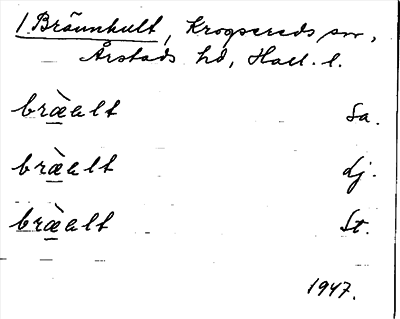 1. Bräunhult, Krogsereds sn,
Årstads hd, Hall. l.
bræ̀alt Sa.
bræ̀alt dj.
bræ̀alt St.
1947.